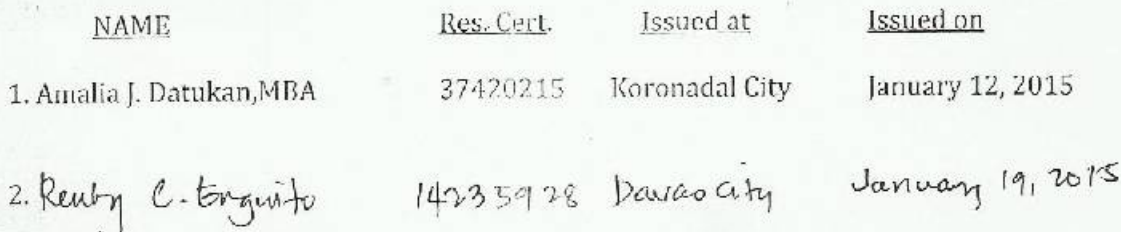 NAME Res. Cert. Issued at Issued on
1. Amalia J. Datukan,MBA 37420215 Koronadal City January 12, 2015
2. C. 14235928 Davao City January 19, 2015